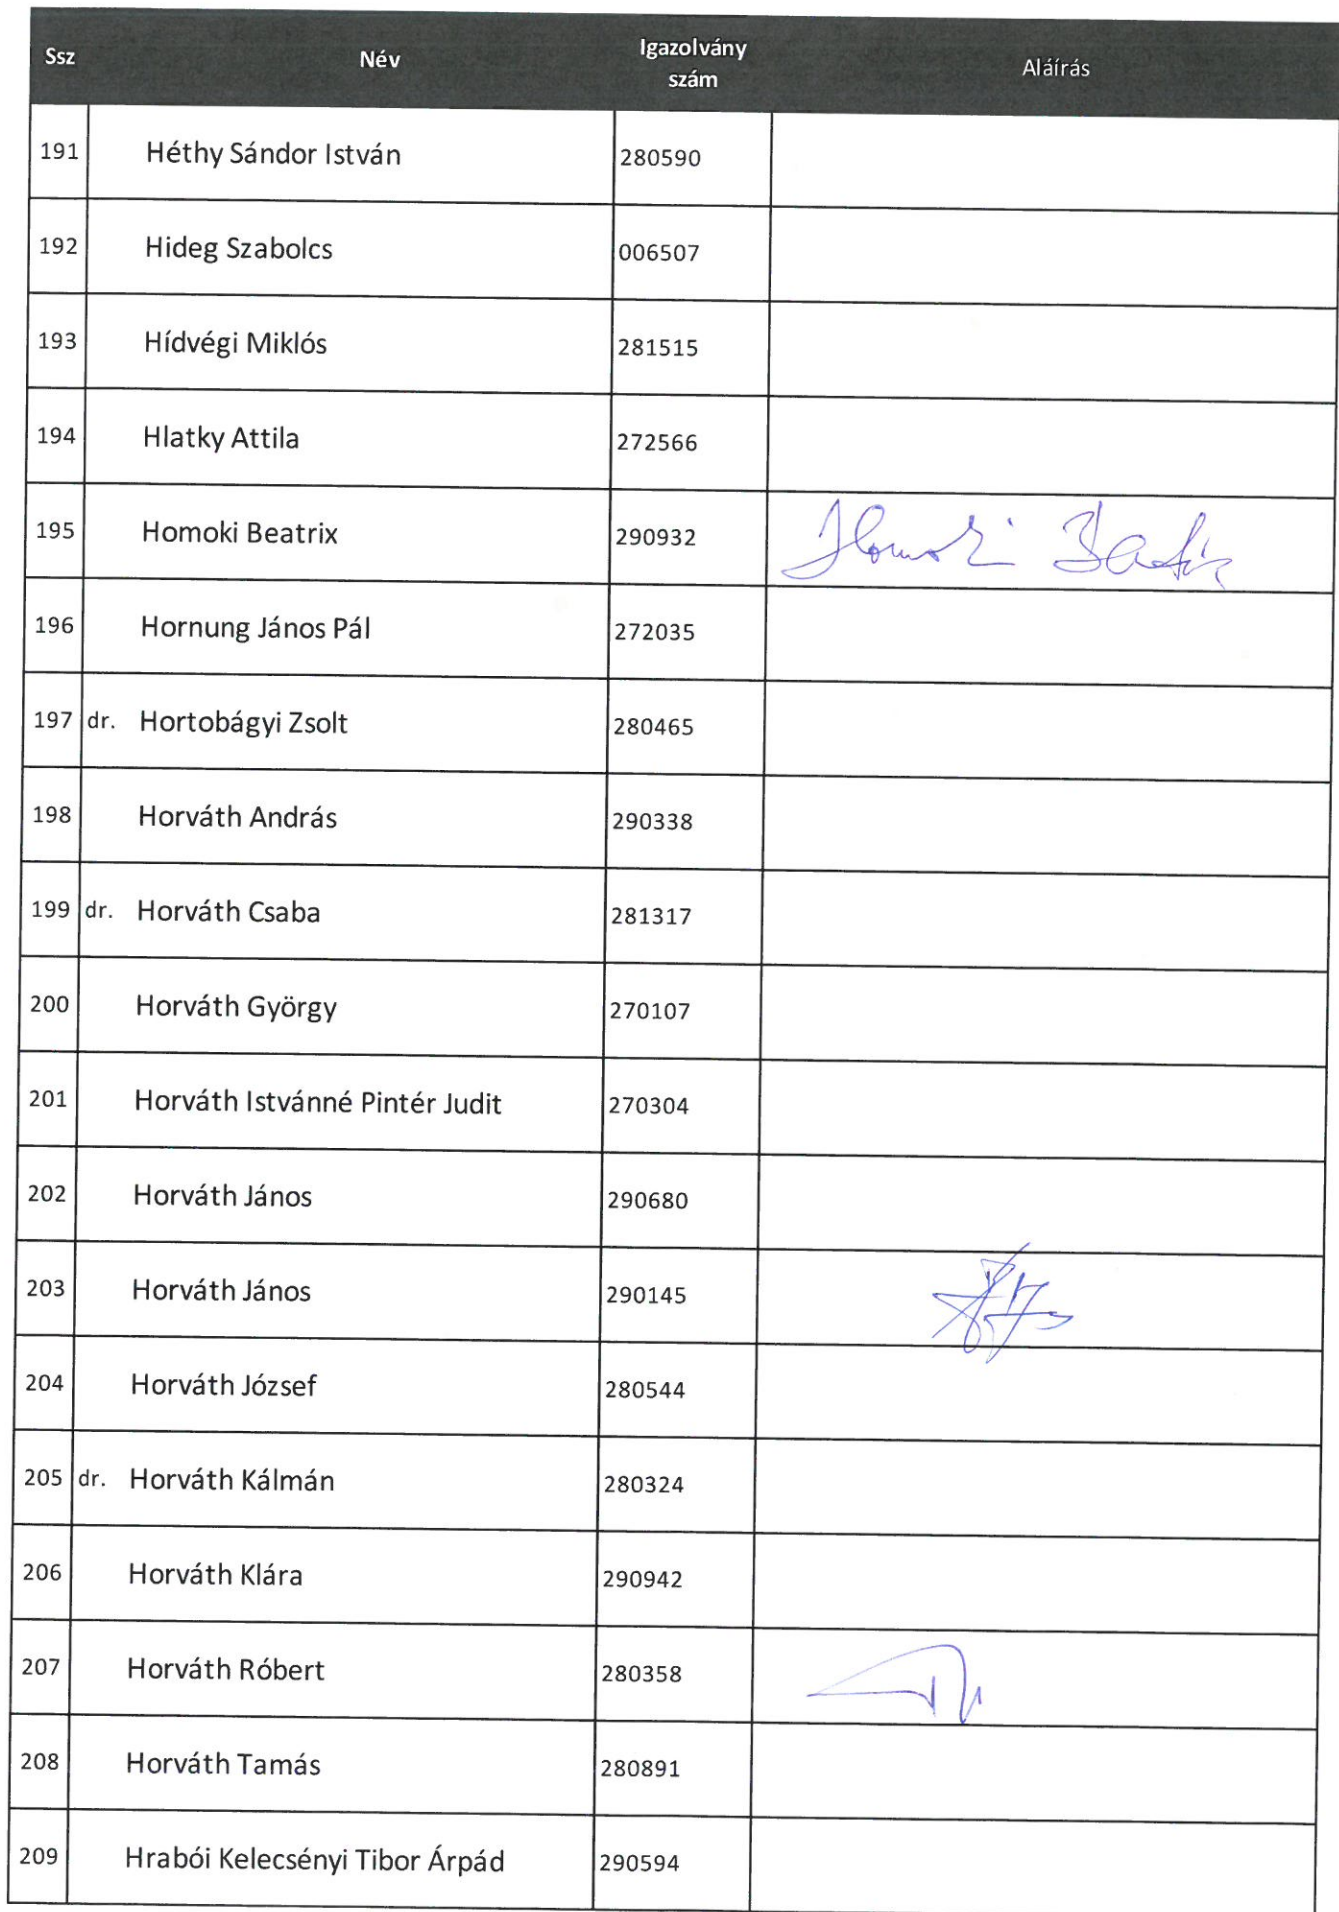 Ssz Név Igazolvány szám Aláírás
191 Héthy Sándor István 280590
192 Hideg Szabolcs 006507
193 Hídvégi Miklós 281515
194 Hlatky Attila 272566
195 Homoki Beatrix 290932 Homoki Beatrix
196 Hornung János Pál 272035
197 dr. Hortobágyi Zsolt 280465
198 Horváth András 290338
199 dr. Horváth Csaba 281317
200 Horváth György 270107
201 Horváth Istvánné Pintér Judit 270304
202 Horváth János 290680
203 Horváth János 290145
204 Horváth József 280544
205 dr. Horváth Kálmán 280324
206 Horváth Klára 290942
207 Horváth Róbert 280358
208 Horváth Tamás 280891
209 Hrabói Kelecsényi Tibor Árpád 290594